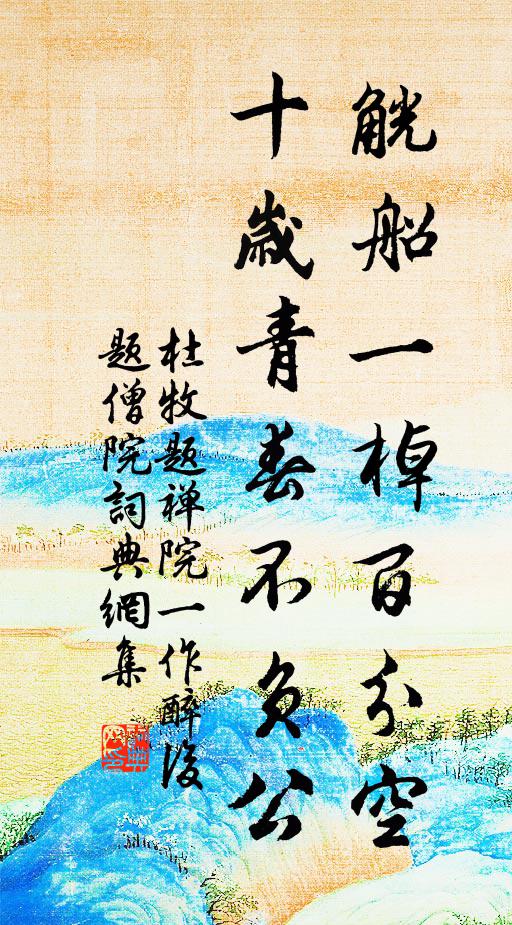 觥船一棹百分空
十歲青春不負公
杜牧題禅院一作醉後
題僧院詞典網集